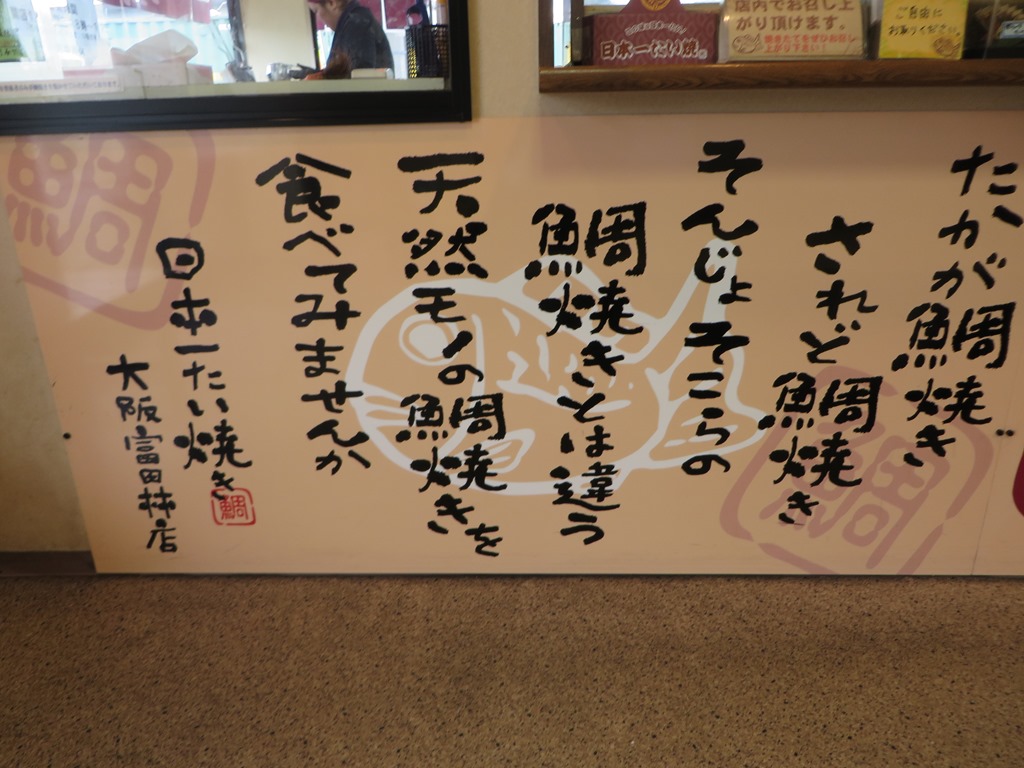 日本一たい焼
店内でお召し上
がり頂けます。
ご自由に
お取りください。
たかが鯛焼き
されど鯛焼き
そんじょそこらの
鯛焼きとは違う
天然モノの鯛焼きを
食べてみませんか
日本一たい焼き
鯛
大阪富田林店
鯛
鯛